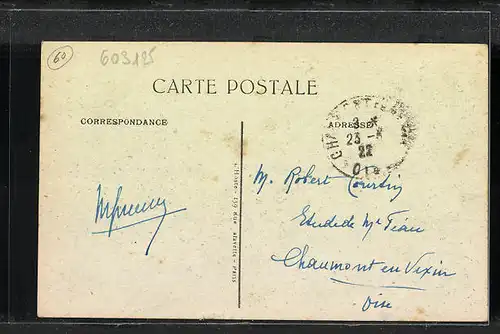 60
603185
CARTE POSTALE
CORRESPONDANCE
ADRESSE
3 *
23 - 
22
OISE
M. Robert Courtin
Etude de Me Téau
Chaumont en Vexin
Oise